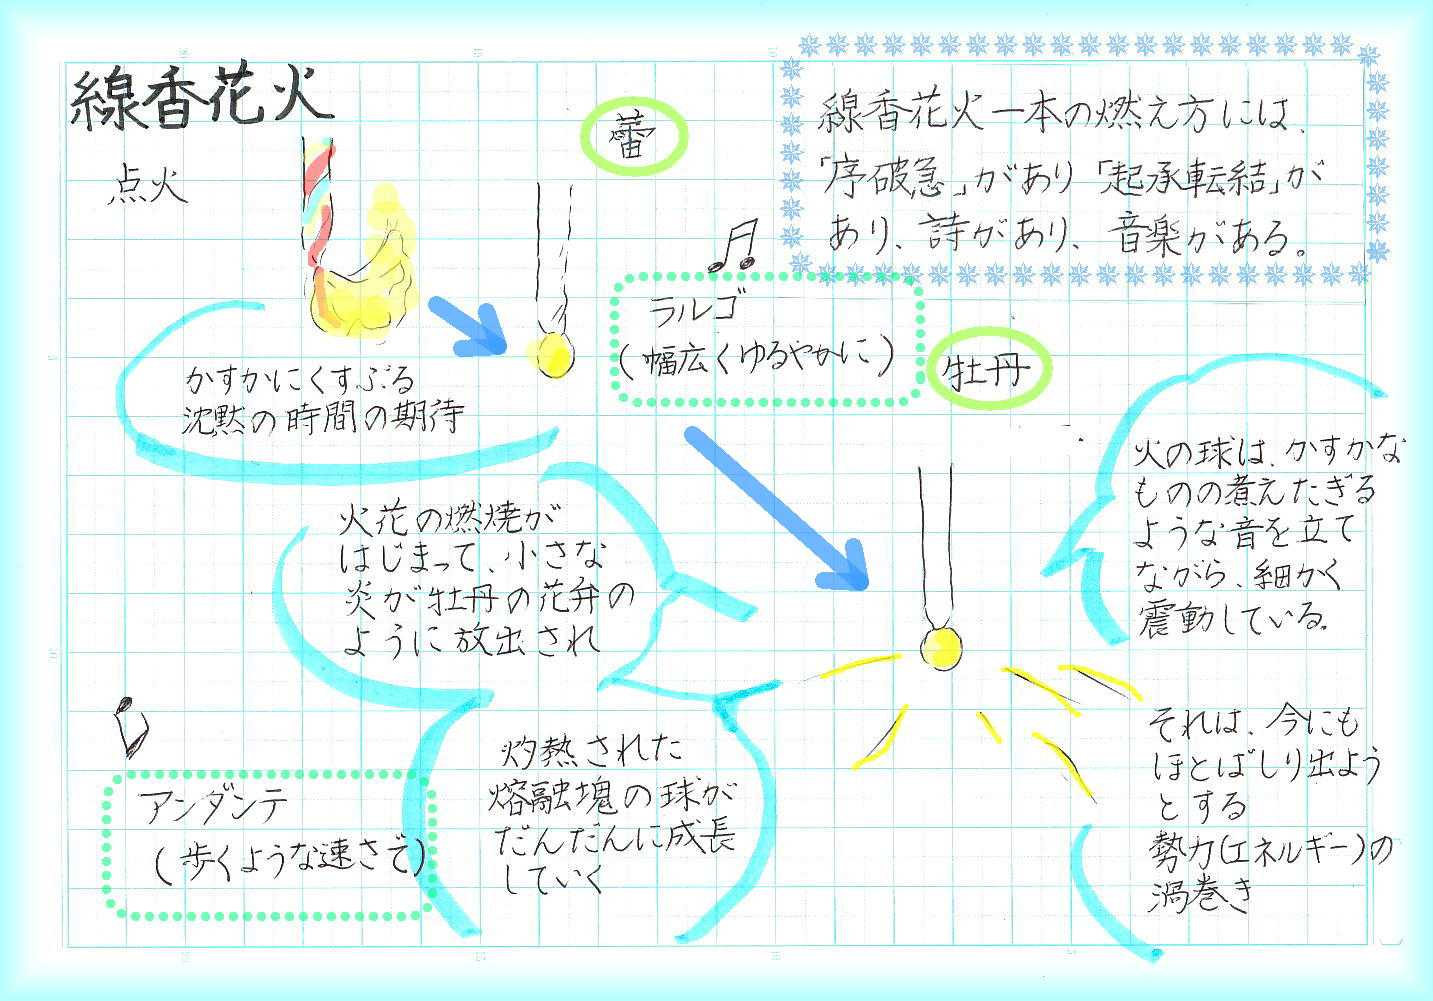 線香花火
点火
蕾
線香花火一本の燃え方には、
「序破急」があり「起承転結」が
あり、詩があり、音楽がある。
ラルゴ
(幅広くゆるやかに)
かすかにくすぶる
沈黙の時間の期待
牡丹
火の球は、かすかな
ものの煮えたぎる
ような音を立て
ながら、細かく
震動している。
火花の燃焼が
はじまって、小さな
炎が牡丹の花弁の
ように放出され
それは、今にも
ほとばしり出よう
とする
勢力(エネルギー)の
渦巻き
灼熱された
熔融塊の球が
だんだんに成長
していく
アンダンテ
(歩くような速さで)